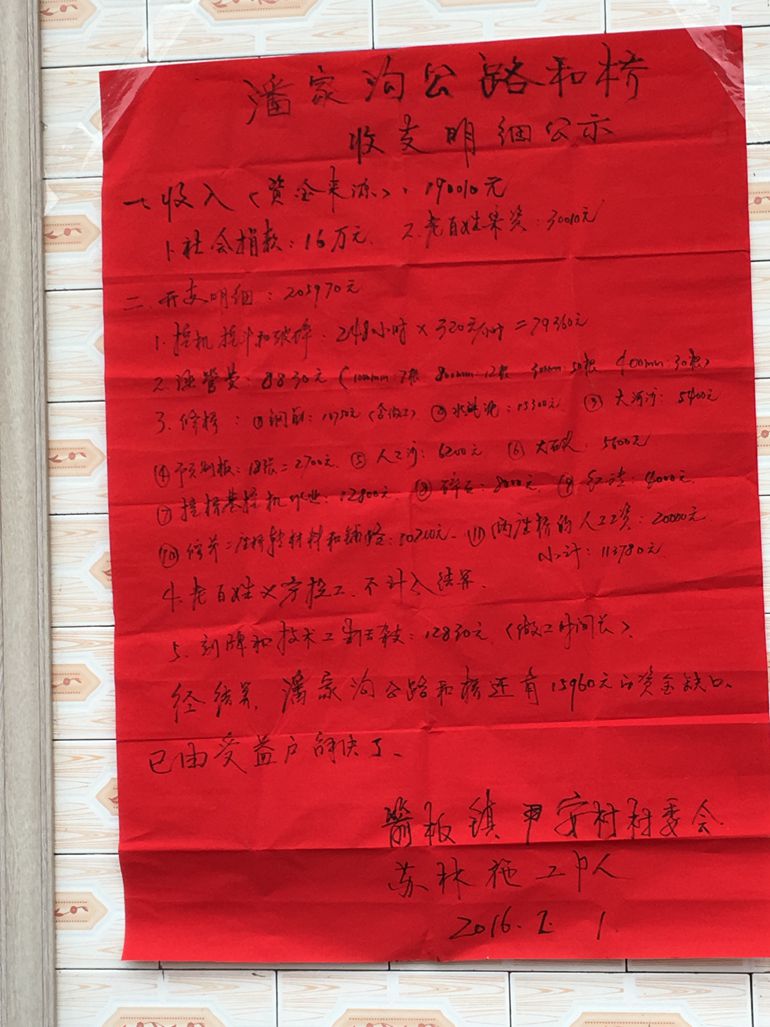 潘家沟公路和桥
收支明细公示
一、收入(资金来源):190010元
1.社会捐款:16万元 2.老百姓集资:30010元
二.开支明细:205970元
1.挖机挖斗和破碎:248小时×320元/小时=79360元
2.涵管费:8830元(1000mm 7根 800mm 12根 50根 400mm 30根)
3.修桥:①钢筋:元(含做工)②水泥:15300元 ③大河沙:5400元
④预制板:18张=2700元 ⑤人工沙:6200元 ⑥大石:5600元
⑦挖桥基挖机作业:12800元 ⑧碎石:8000元 ⑨:4000元
⑩二座桥材料和:元 ⑪两座桥的人工工资:20000元
小计:113780元
4.老百姓义务投工,不计入结算.
5.刻牌和技术工:12830元(做工时间长).
经结算,潘家沟公路和桥还有15960元的资金缺口.
已由受益户解决了.
箭板镇 安村村委会
苏林 施工
2016.2.1